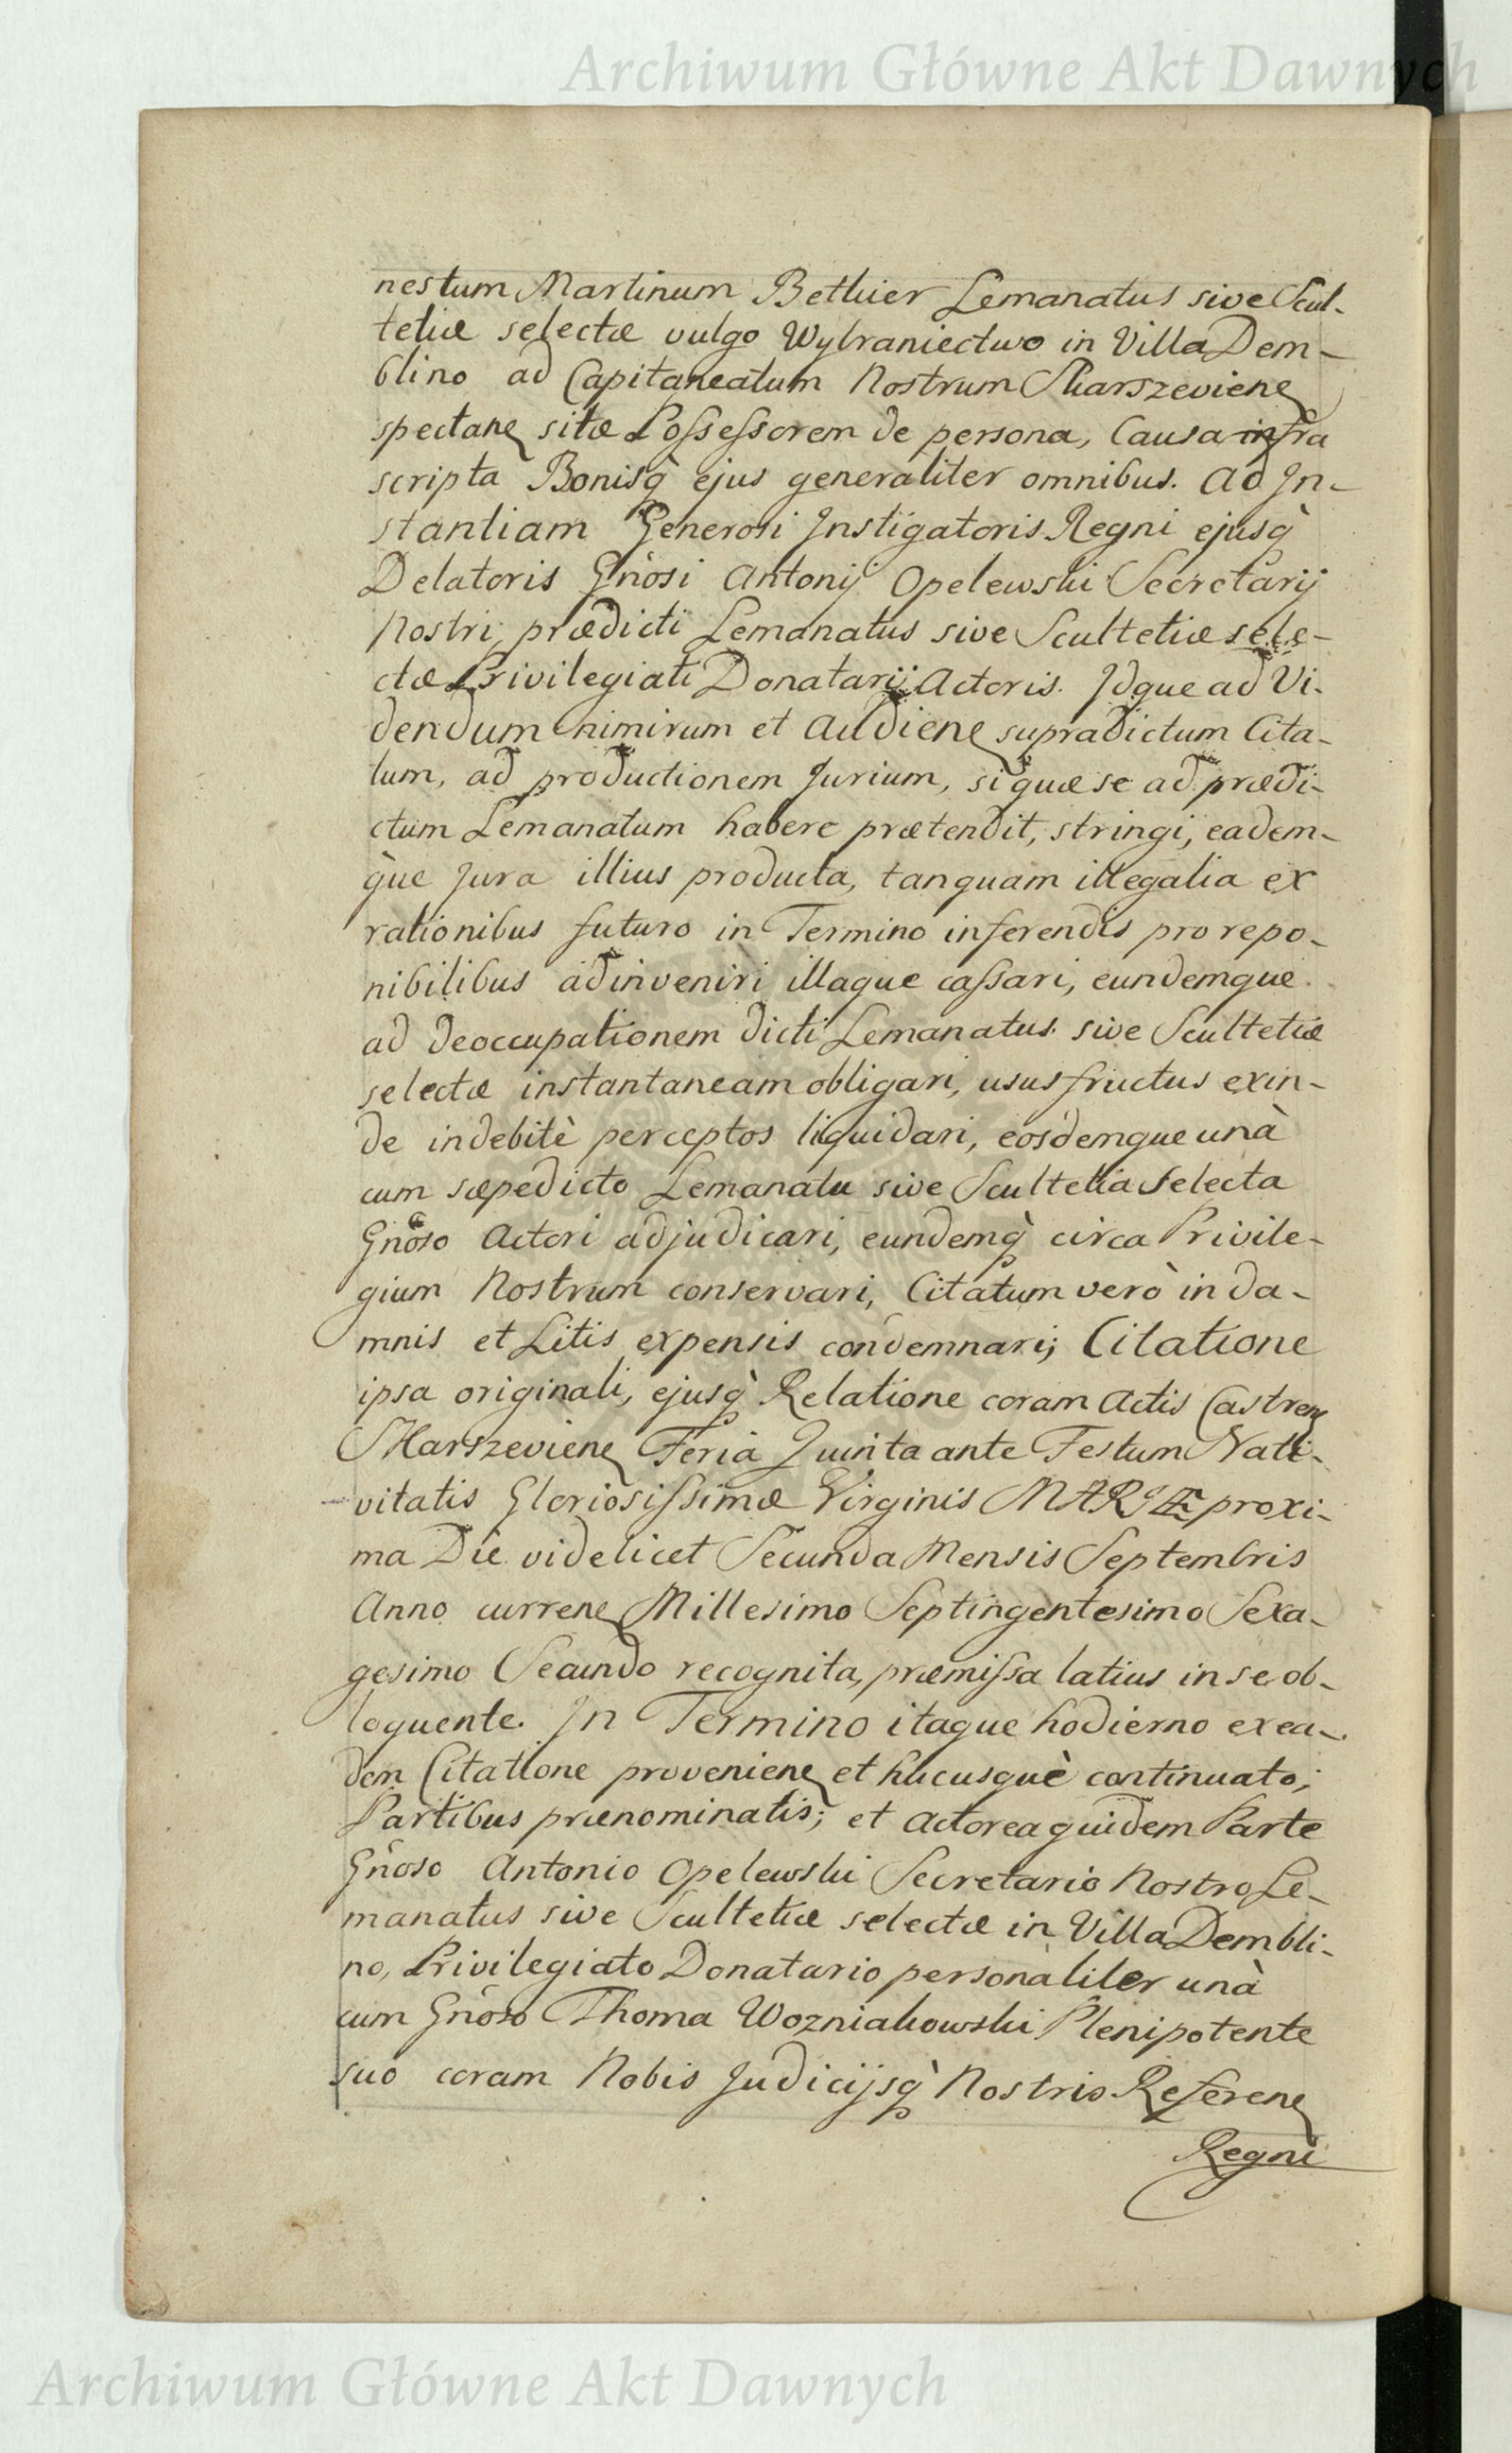 Archiwum Główne Akt Dawnych
nestum Martinum Bethier Lemanatus sive Scul-
tetiæ selectæ vulgo Wybraniectwo in Villa Dem-
blino ad Capitaneatum Nostrum Skarszeviene
spectane sitæ Possessorem de persona, Causa infra
scripta Bonisq̀ ejus generaliter omnibus. Ad In-
stantiam Generosi Instigatoris Regni ejusq̀
Delatoris Gnosi Antonij Opelewski Secretarij
Nostri, prædicti Lemanatus sive Scultetiæ sele-
ctæ Privilegiati Donatarij Actoris. Idque ad Vi-
dendum nimirum et Audiene supradictum Cita-
tum, ad productionem Jurium, si quæ se ad prædi-
ctum Lemanatum habere prætendit, stringi, eadem-
q̀ue Jura illius producta, tanquam illegalia ex
rationibus futuro in Termino inferendis pro repo-
nibilibus adinveniri illaque cassari, eundemque
ad deoccupationem dicti Lemanatus sive Scultetiæ
selectæ instantaneam obligari, usus fructus exin-
de indebitè perceptos liquidari, eosdemque unà
cum sæpedicto Lemanatu sive Scultetia selecta
Gnoso Actori adjudicari, eundemq̀ circa Privile-
gium Nostrum conservari, Citatum verò in da-
mnis et Litis expensis condemnari; Citatione
ipsa originali, ejusq̀ Relatione coram Actis Castrene
Skarszeviene Feria Quinta ante Festum Nati-
vitatis Gloriosissimæ Virginis MARIÆ proxi-
ma Die videlicet Secunda Mensis Septembris
Anno currene Millesimo Septingentesimo Sexa-
gesimo Secundo recognita, præmissa latius in se ob-
loquente. In Termino itaque hodierno ex ea-
dem Citatione proveniene et hucusquè continuato;
Partibus prænominatis; et Actorea quidem Parte
Gnoso Antonio Opelewski Secretario Nostro Le-
manatus sive Scultetiæ selectæ in Villa Dembli-
no, Privilegiato Donatario personaliter unà
cum Gnoso Thoma Wozniakowski Plenipotente
suo coram Nobis Judicijsq̀ Nostris Referene
Regni
Archiwum Główne Akt Dawnych